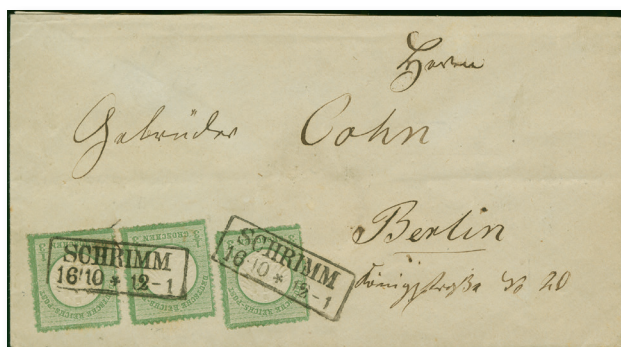 Herrn
Gebrüder Cohn
Berlin
Königsstraße No 20
SCHRIMM
16 10 * 12-1
SCHRIMM
16 10 * 12-1